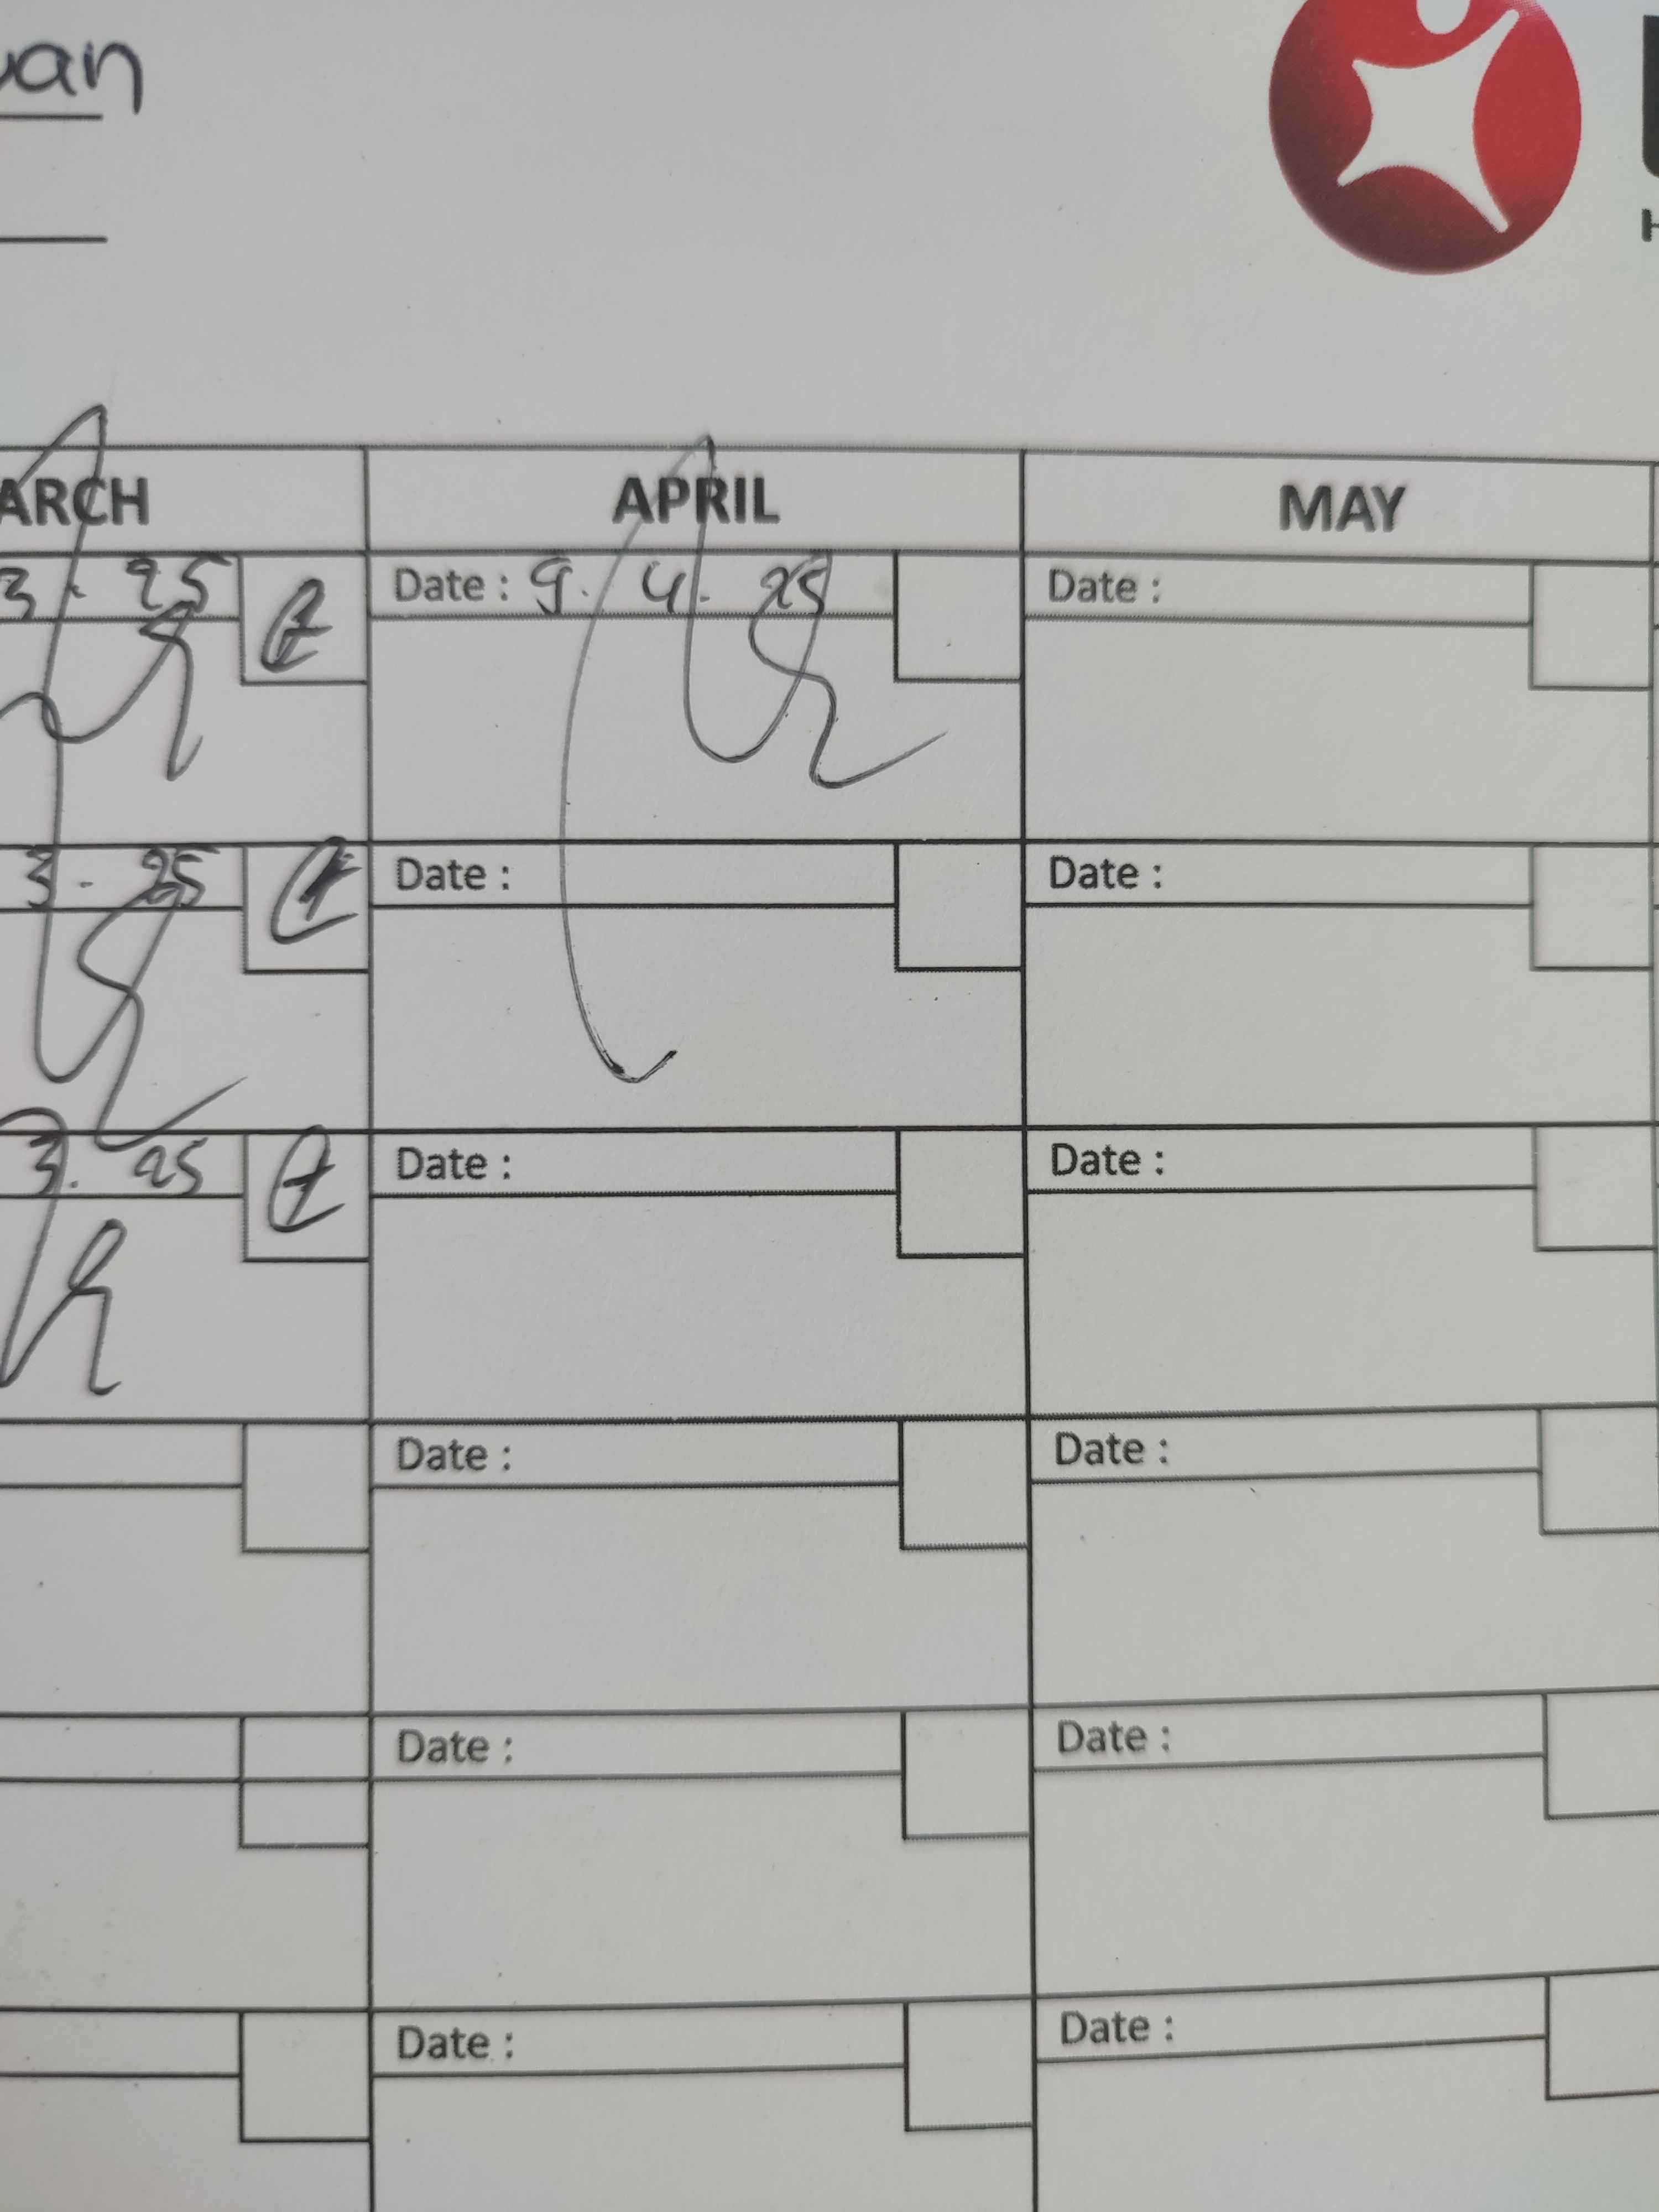 uan
H
ARCH APRIL MAY
3 - 25 Date : 9. 4. 25 Date :
3 - 25 Date : Date :
3. 25 Date : Date :
Date : Date :
Date : Date :
Date : Date :